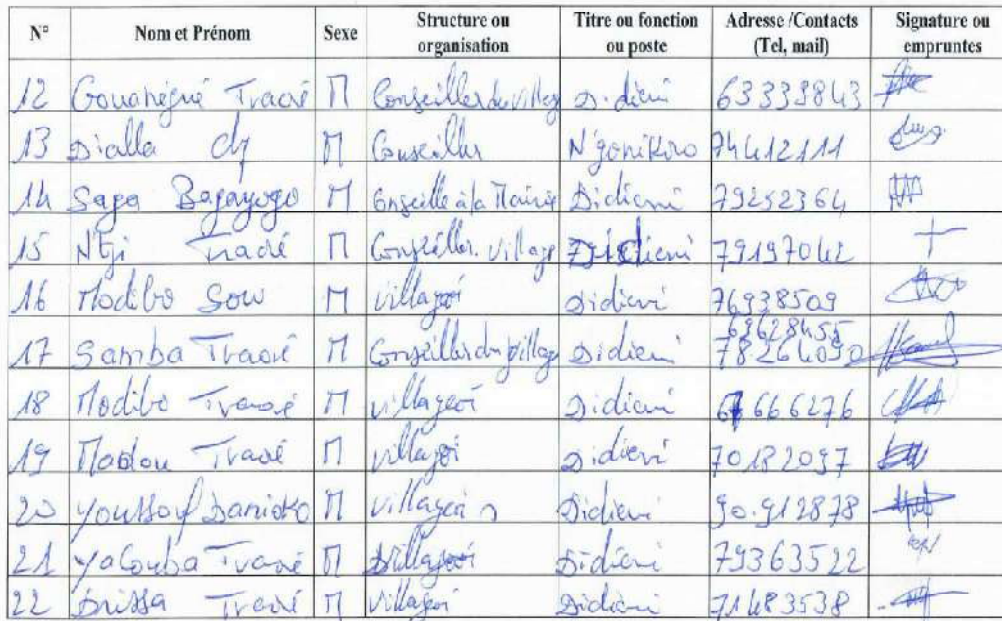 N° Nom et Prénom Sexe Structure ou organisation Titre ou fonction ou poste Adresse /Contacts (Tel, mail) Signature ou empruntes
12 Gouanégué Traoré M Conseiller du village Didieni 63339843
13 Dialla M Conseiller N'gonikoro 74412111
14 Saga Bagayogo M Conseille à la Mairie Didieni 79252364
15 Ntji Traoré M Conseiller village Didieni 79197042
16 Modibo Sow M villageoi Didieni 76938509
17 Samba Traoré M Conseiller du village Didieni 69628455 78264090
18 Modibo Traoré M villageoi Didieni 666276
19 Madou Traoré M villageoi Didieni 70182097
20 Youssouf Danioko M villageois Didieni 90.912878
21 Yacouba Traoré M villageoi Didieni 79363522
22 Drissa Traoré M villageoi Didieni 71483538